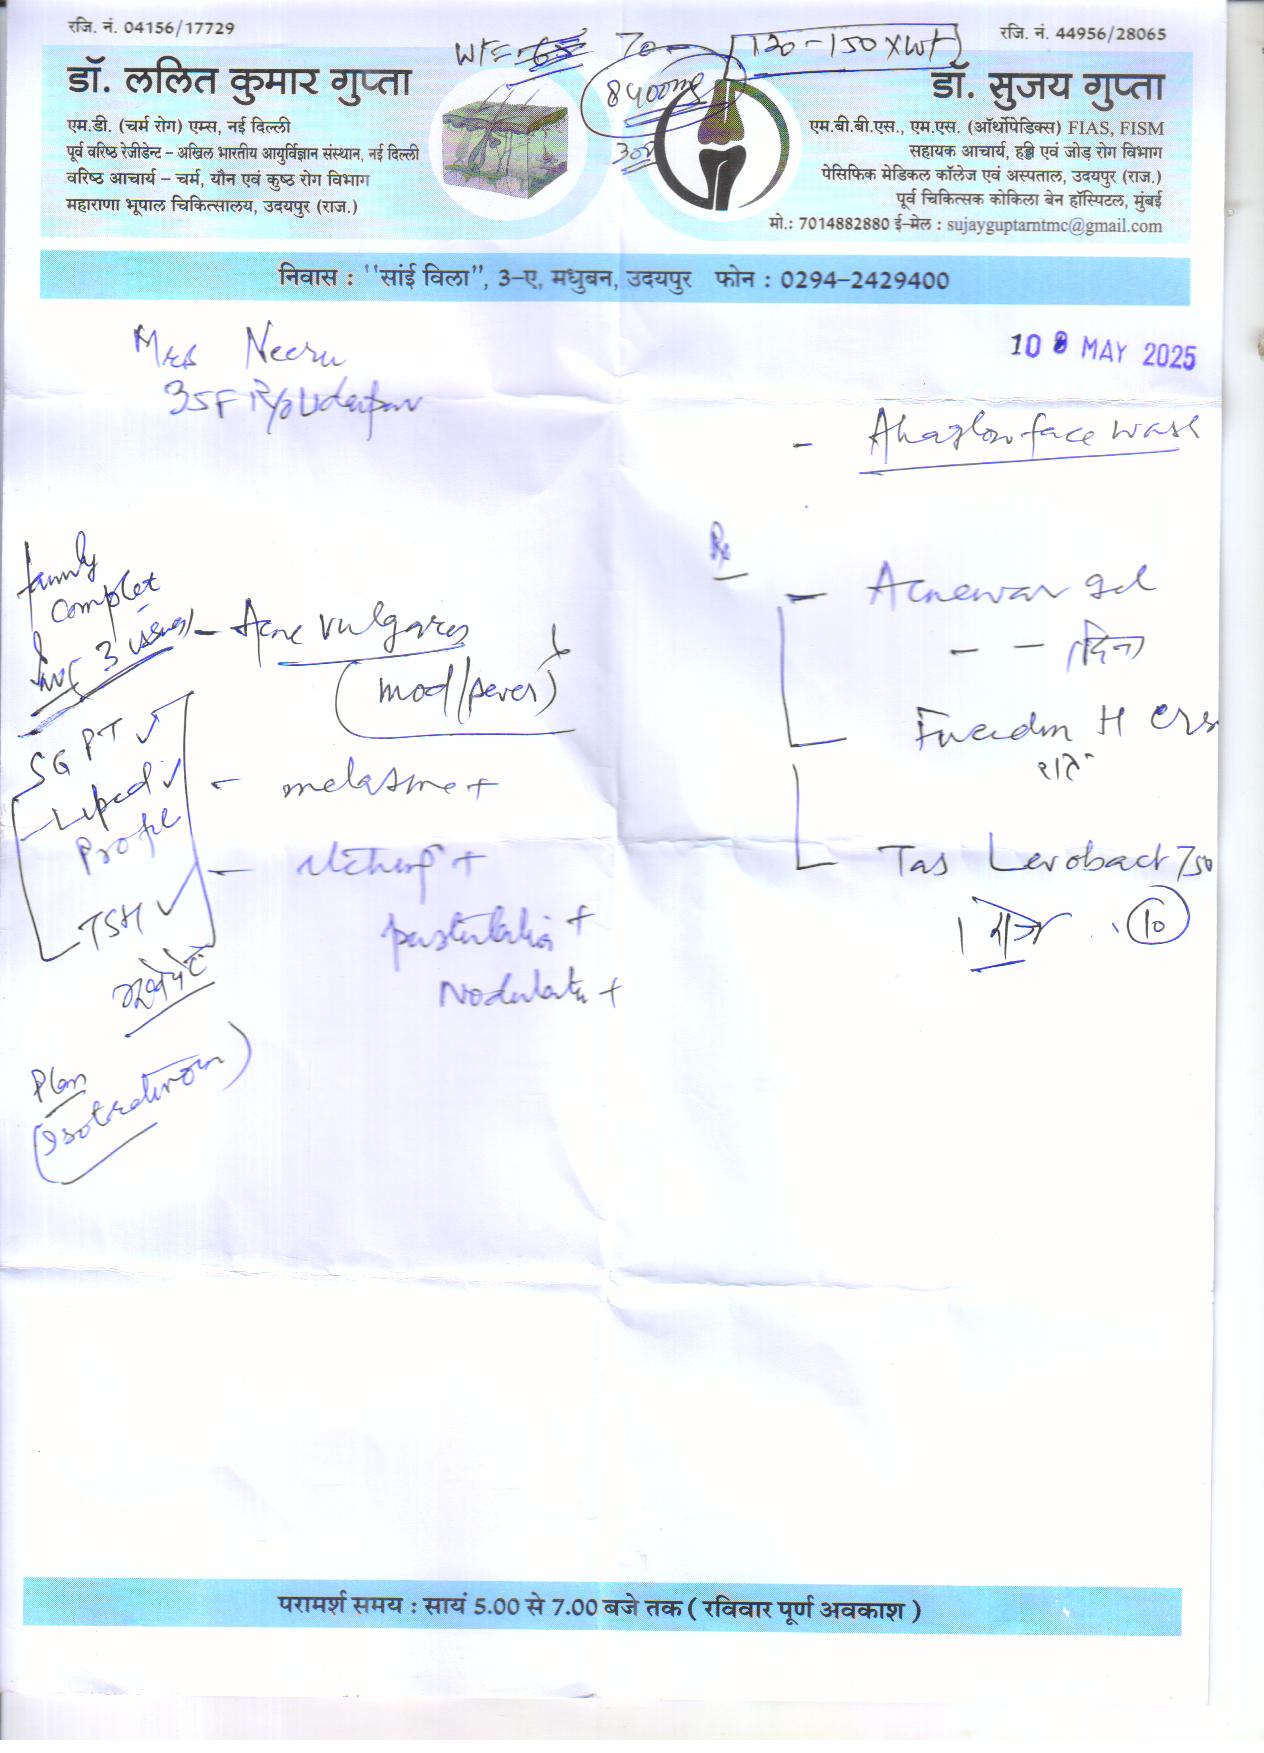 रजि. नं. 04156/17729
रजि. नं. 44956/28065
Wt= 65 70 120-150 x wt
8400mg
डॉ. ललित कुमार गुप्ता
एम.डी. (चर्म रोग) एम्स, नई दिल्ली
पूर्व वरिष्ठ रेजीडेन्ट – अखिल भारतीय आयुर्विज्ञान संस्थान, नई दिल्ली
वरिष्ठ आचार्य – चर्म, यौन एवं कुष्ठ रोग विभाग
महाराणा भूपाल चिकित्सालय, उदयपुर (राज.)
डॉ. सुजय गुप्ता
एम.बी.बी.एस., एम.एस. (ऑर्थोपेडिक्स) FIAS, FISM
सहायक आचार्य, हड्डी एवं जोड़ रोग विभाग
पेसिफिक मेडिकल कॉलेज एवं अस्पताल, उदयपुर (राज.)
पूर्व चिकित्सक कोकिला बेन हॉस्पिटल, मुंबई
मो.: 7014882880 ई-मेल : sujayguptarntmc@gmail.com
निवास : ''सांई विला'', 3-ए, मधुबन, उदयपुर फोन : 0294-2429400
Mrs Neeru
35F R/o Udaipur
MAY 2025
- Ahaglow face wash
family
complet
3 issues
- Acne vulgares
(mod/sever)
SGPT ✓
- Liped ✓
Profile
TSH ✓
- melasme +
- Itching +
pustulatin +
Nodulatin +
Plan
(Isotretinoin)
Rx
- Acnewar gel
- - दिन
H Crs
रात
Tas Levobact 750
1 रोज (10)
परामर्श समय : सायं 5.00 से 7.00 बजे तक ( रविवार पूर्ण अवकाश )